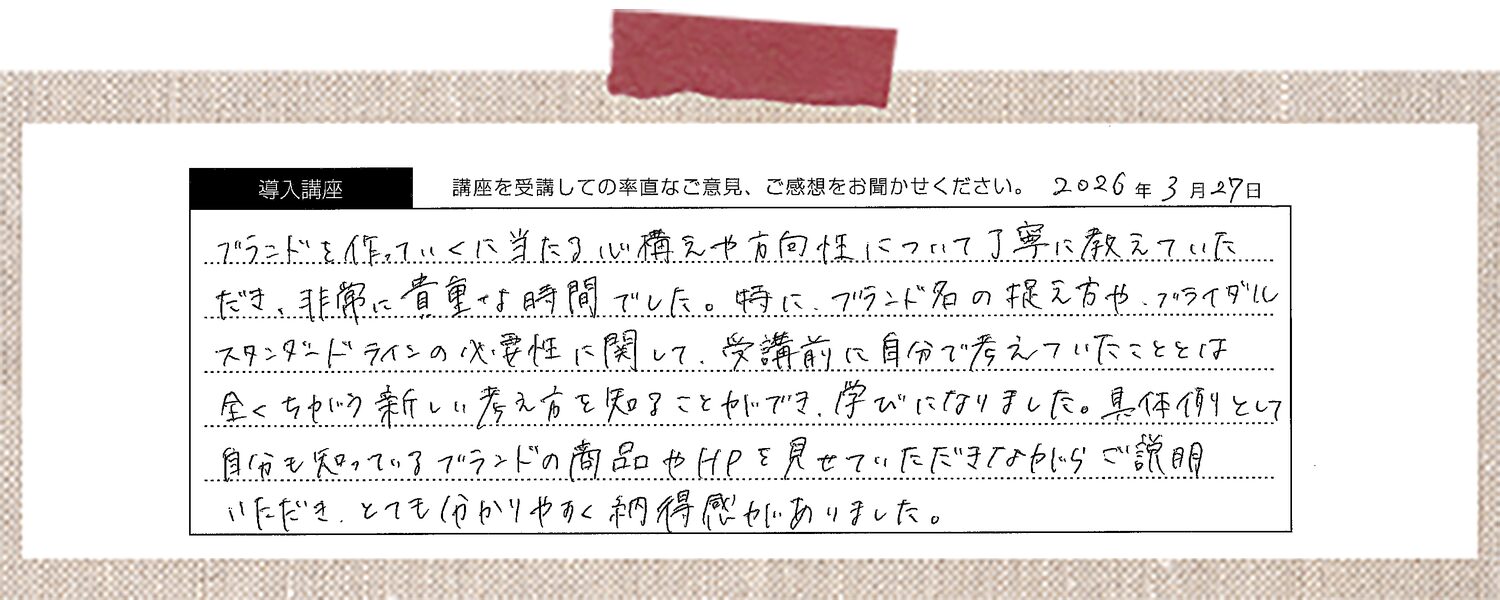 導入講座 講座を受講しての率直なご意見、ご感想をお聞かせください。 2026年3月27日
ブランドを作っていくに当たる心構えや方向性について丁寧に教えていた
だき、非常に貴重な時間でした。特に、ブランド名の捉え方や、ブライダル
スタンダードラインの必要性に関して、受講前に自分で考えていたこととは
全くちがう新しい考え方を知ることができ、学びになりました。具体例として
自分も知っているブランドの商品やHPを見せていただきながらご説明
いただき、とても分かりやすく納得感がありました。